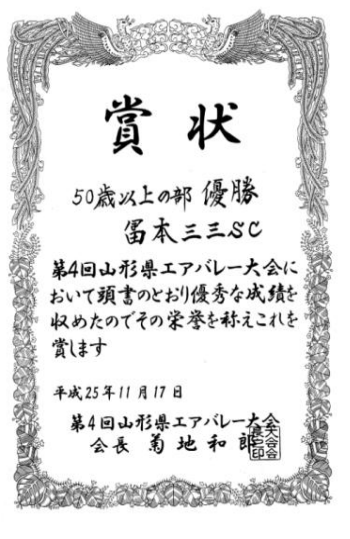 賞状
50歳以上の部 優勝
畄本三三SC
第4回山形県エアバレー大会に
おいて頭書のとおり優秀な成績を
収めたのでその栄誉を称えこれを
賞します
平成25年11月17日
第4回山形県エアバレー大会
会長 菊地和郎